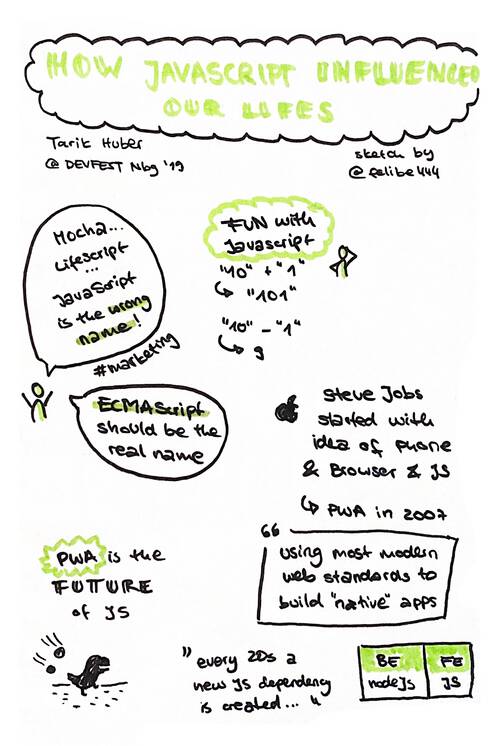 HOW JAVASCRIPT INFLUENCED
OUR LIFES
Tarik Huber
@ DEVFEST Nbg '19
sketch by
@felibe444
Mocha...
Lifescript
...
JavaScript
is the wrong
name!
#marketing
FUN with
Javascript
"10" + "1"
↳ "101"
"10" - "1"
↳ 9
ECMAScript
should be the
real name
Steve Jobs
started with
idea of Phone
& Browser & JS
↳ PWA in 2007
“
using most modern
web standards to
build "native" apps
PWA is the
FUTURE
of JS
" every 20s a
new Js dependency
is created... "
BE FE
nodeJs JS